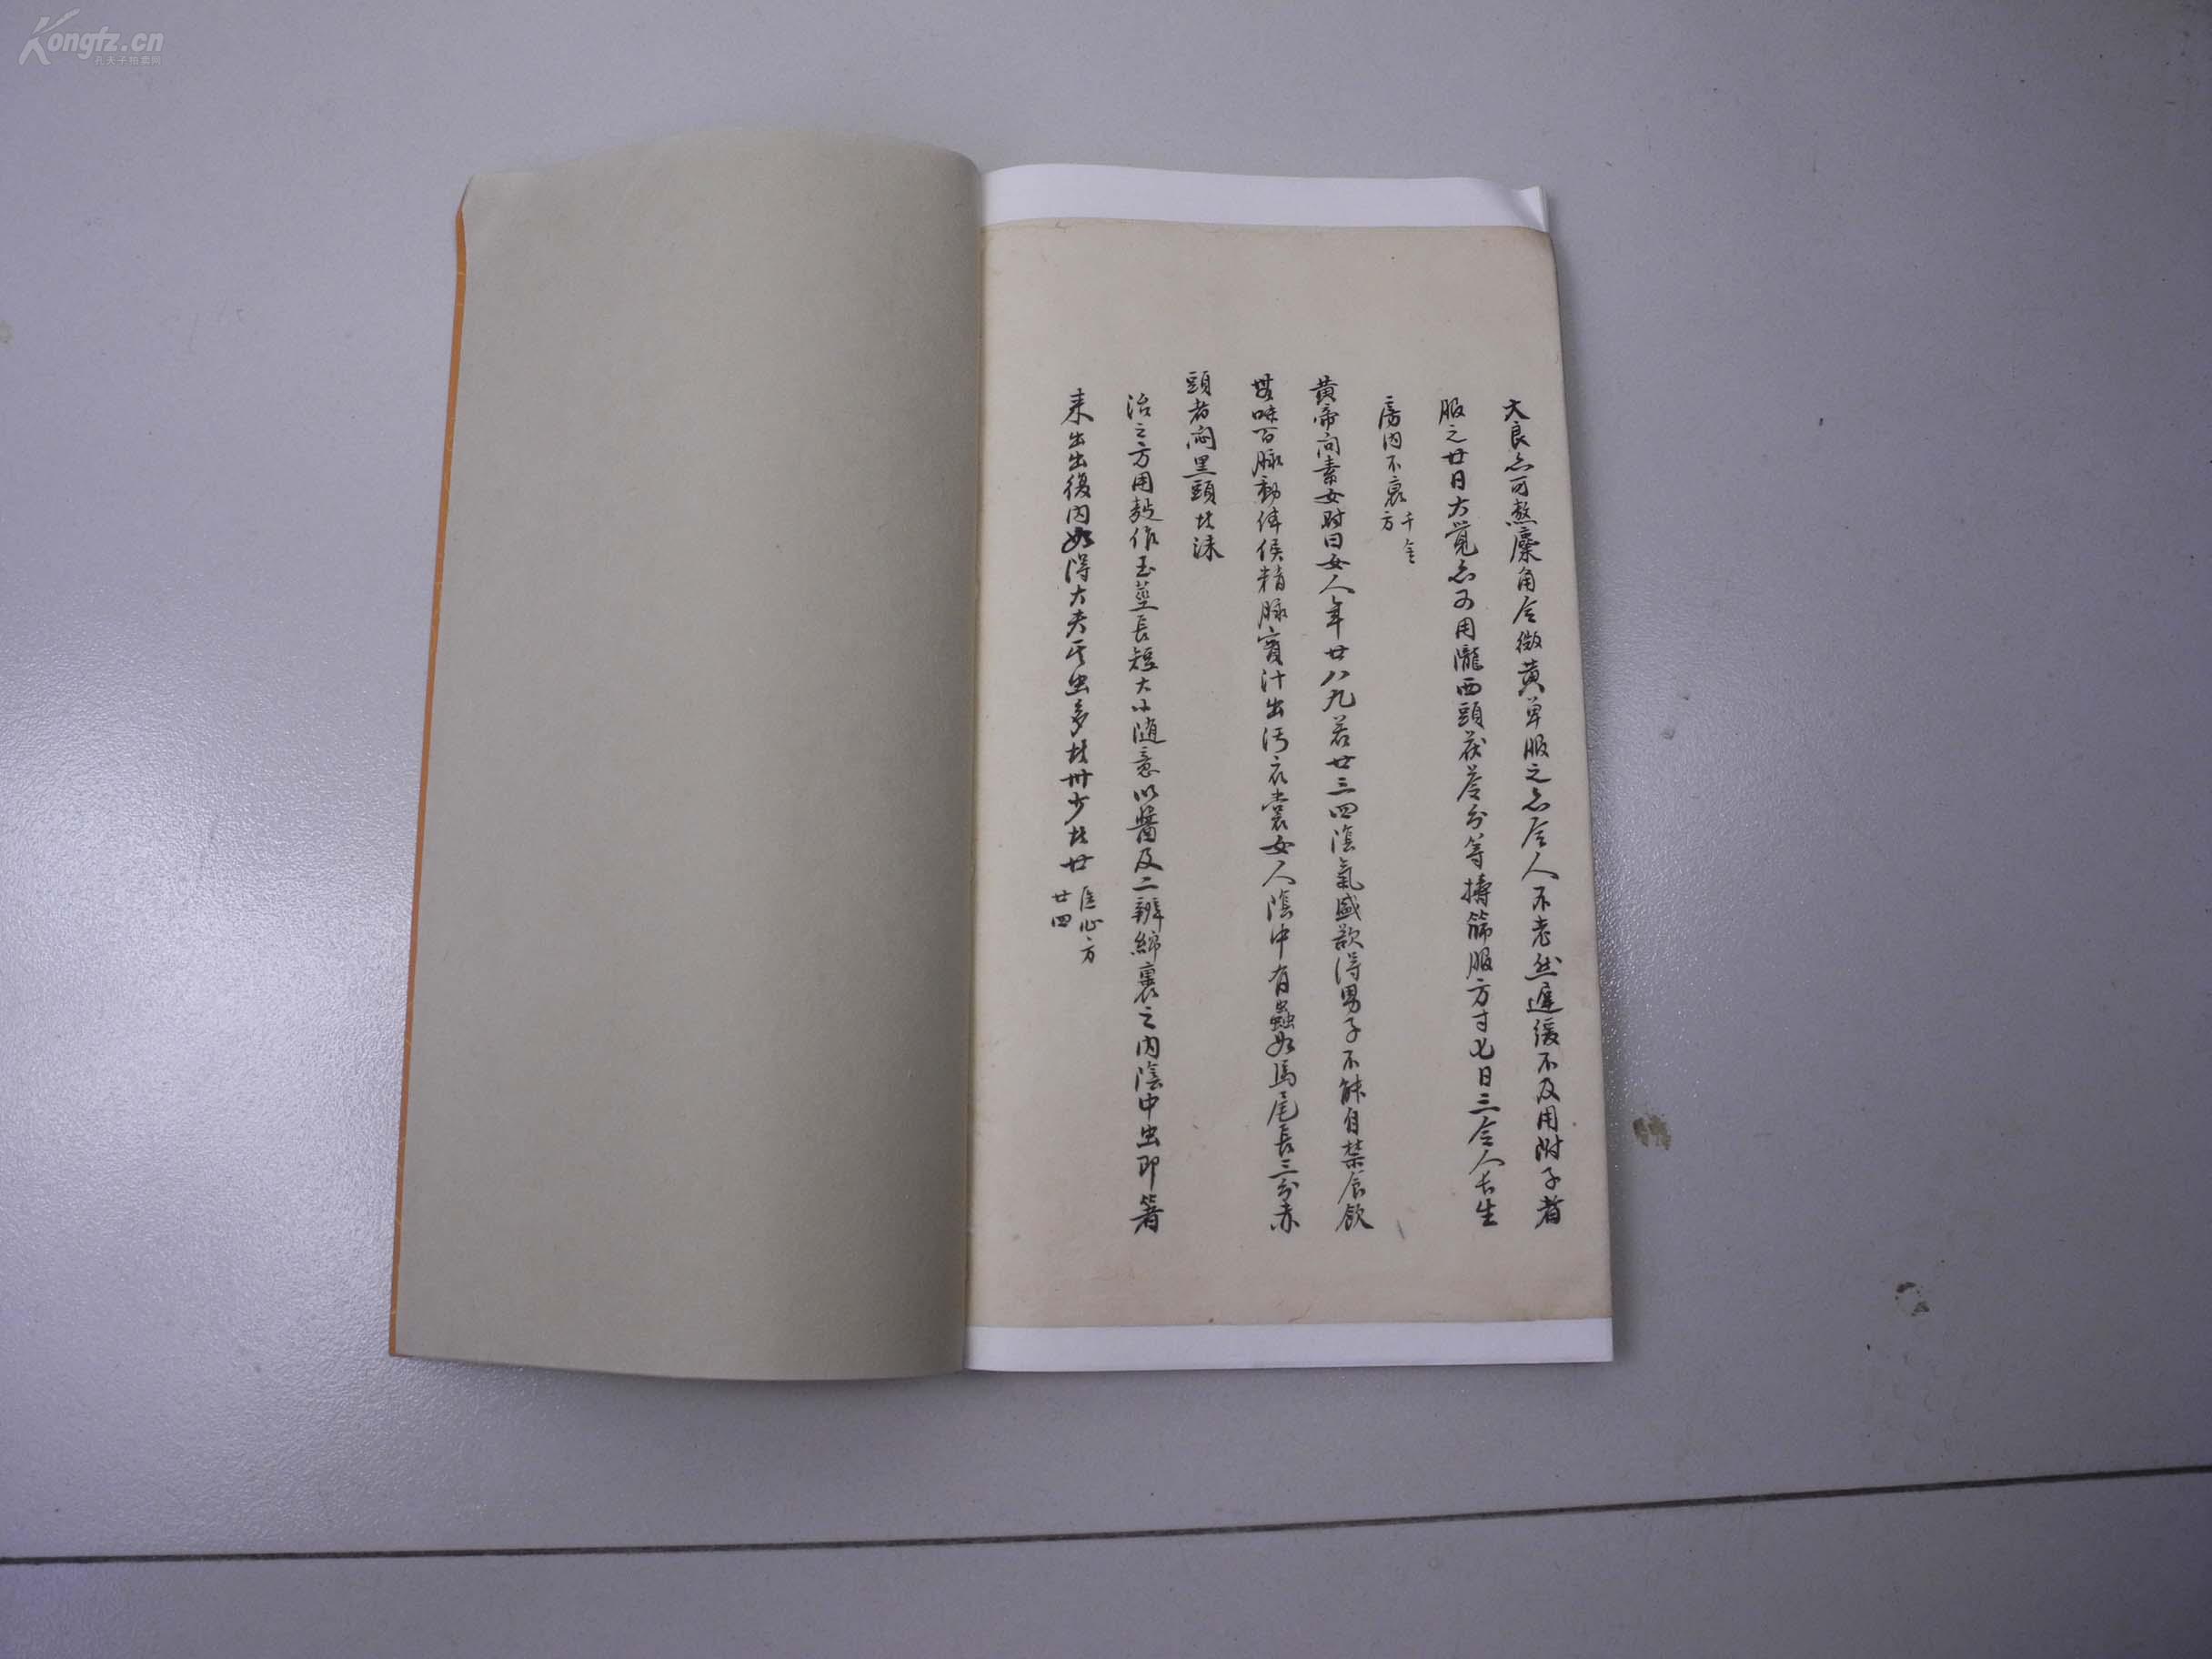 大良亦可熬麋角令微黄單服之亦令人不老然遲緩不及用附子者
服之廿日大覚亦可用隴西頭茯苓分等擣篩服方寸匕日三令人長生
房内不衰千金方
黄帝問素女對曰女人年廿八九若廿三四陰氣盛欲得男子不能自禁食飲
無味百脉動体候精脉實汁出汚衣裳女人陰中有蟲如馬尾長三分赤
頭者悶黒頭者沫
治之方用麪作玉莖長短大小随意以醬及二辦綿裹之内陰中虫即著
来出出復内如得大夫其虫多者卅少者廿医心方廿四
Kongfz.cn
孔夫子拍卖网